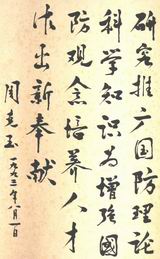 研究推广国防理论
科学知识为增强國
防观念培养人才
作出新奉献
周克玉 一九九三年八月一日